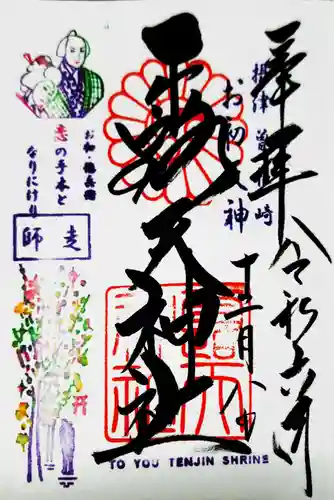 奉拝
令和五年
十二月八日
摂津 曽根崎
お初天神
露天神社
お初・徳兵衛
恋の手本と
なりにけり
走
師
TO YOU TENJIN SHRINE